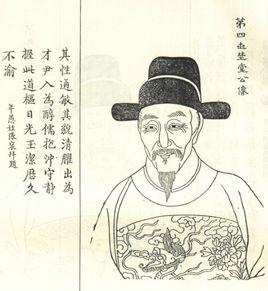 第四世埜堂公像
其性通敏其貌清臞出為
才尹入為醇儒抱沖守静
握此道樞日光玉潔厯久
不渝
年愚姪陳寰拜題